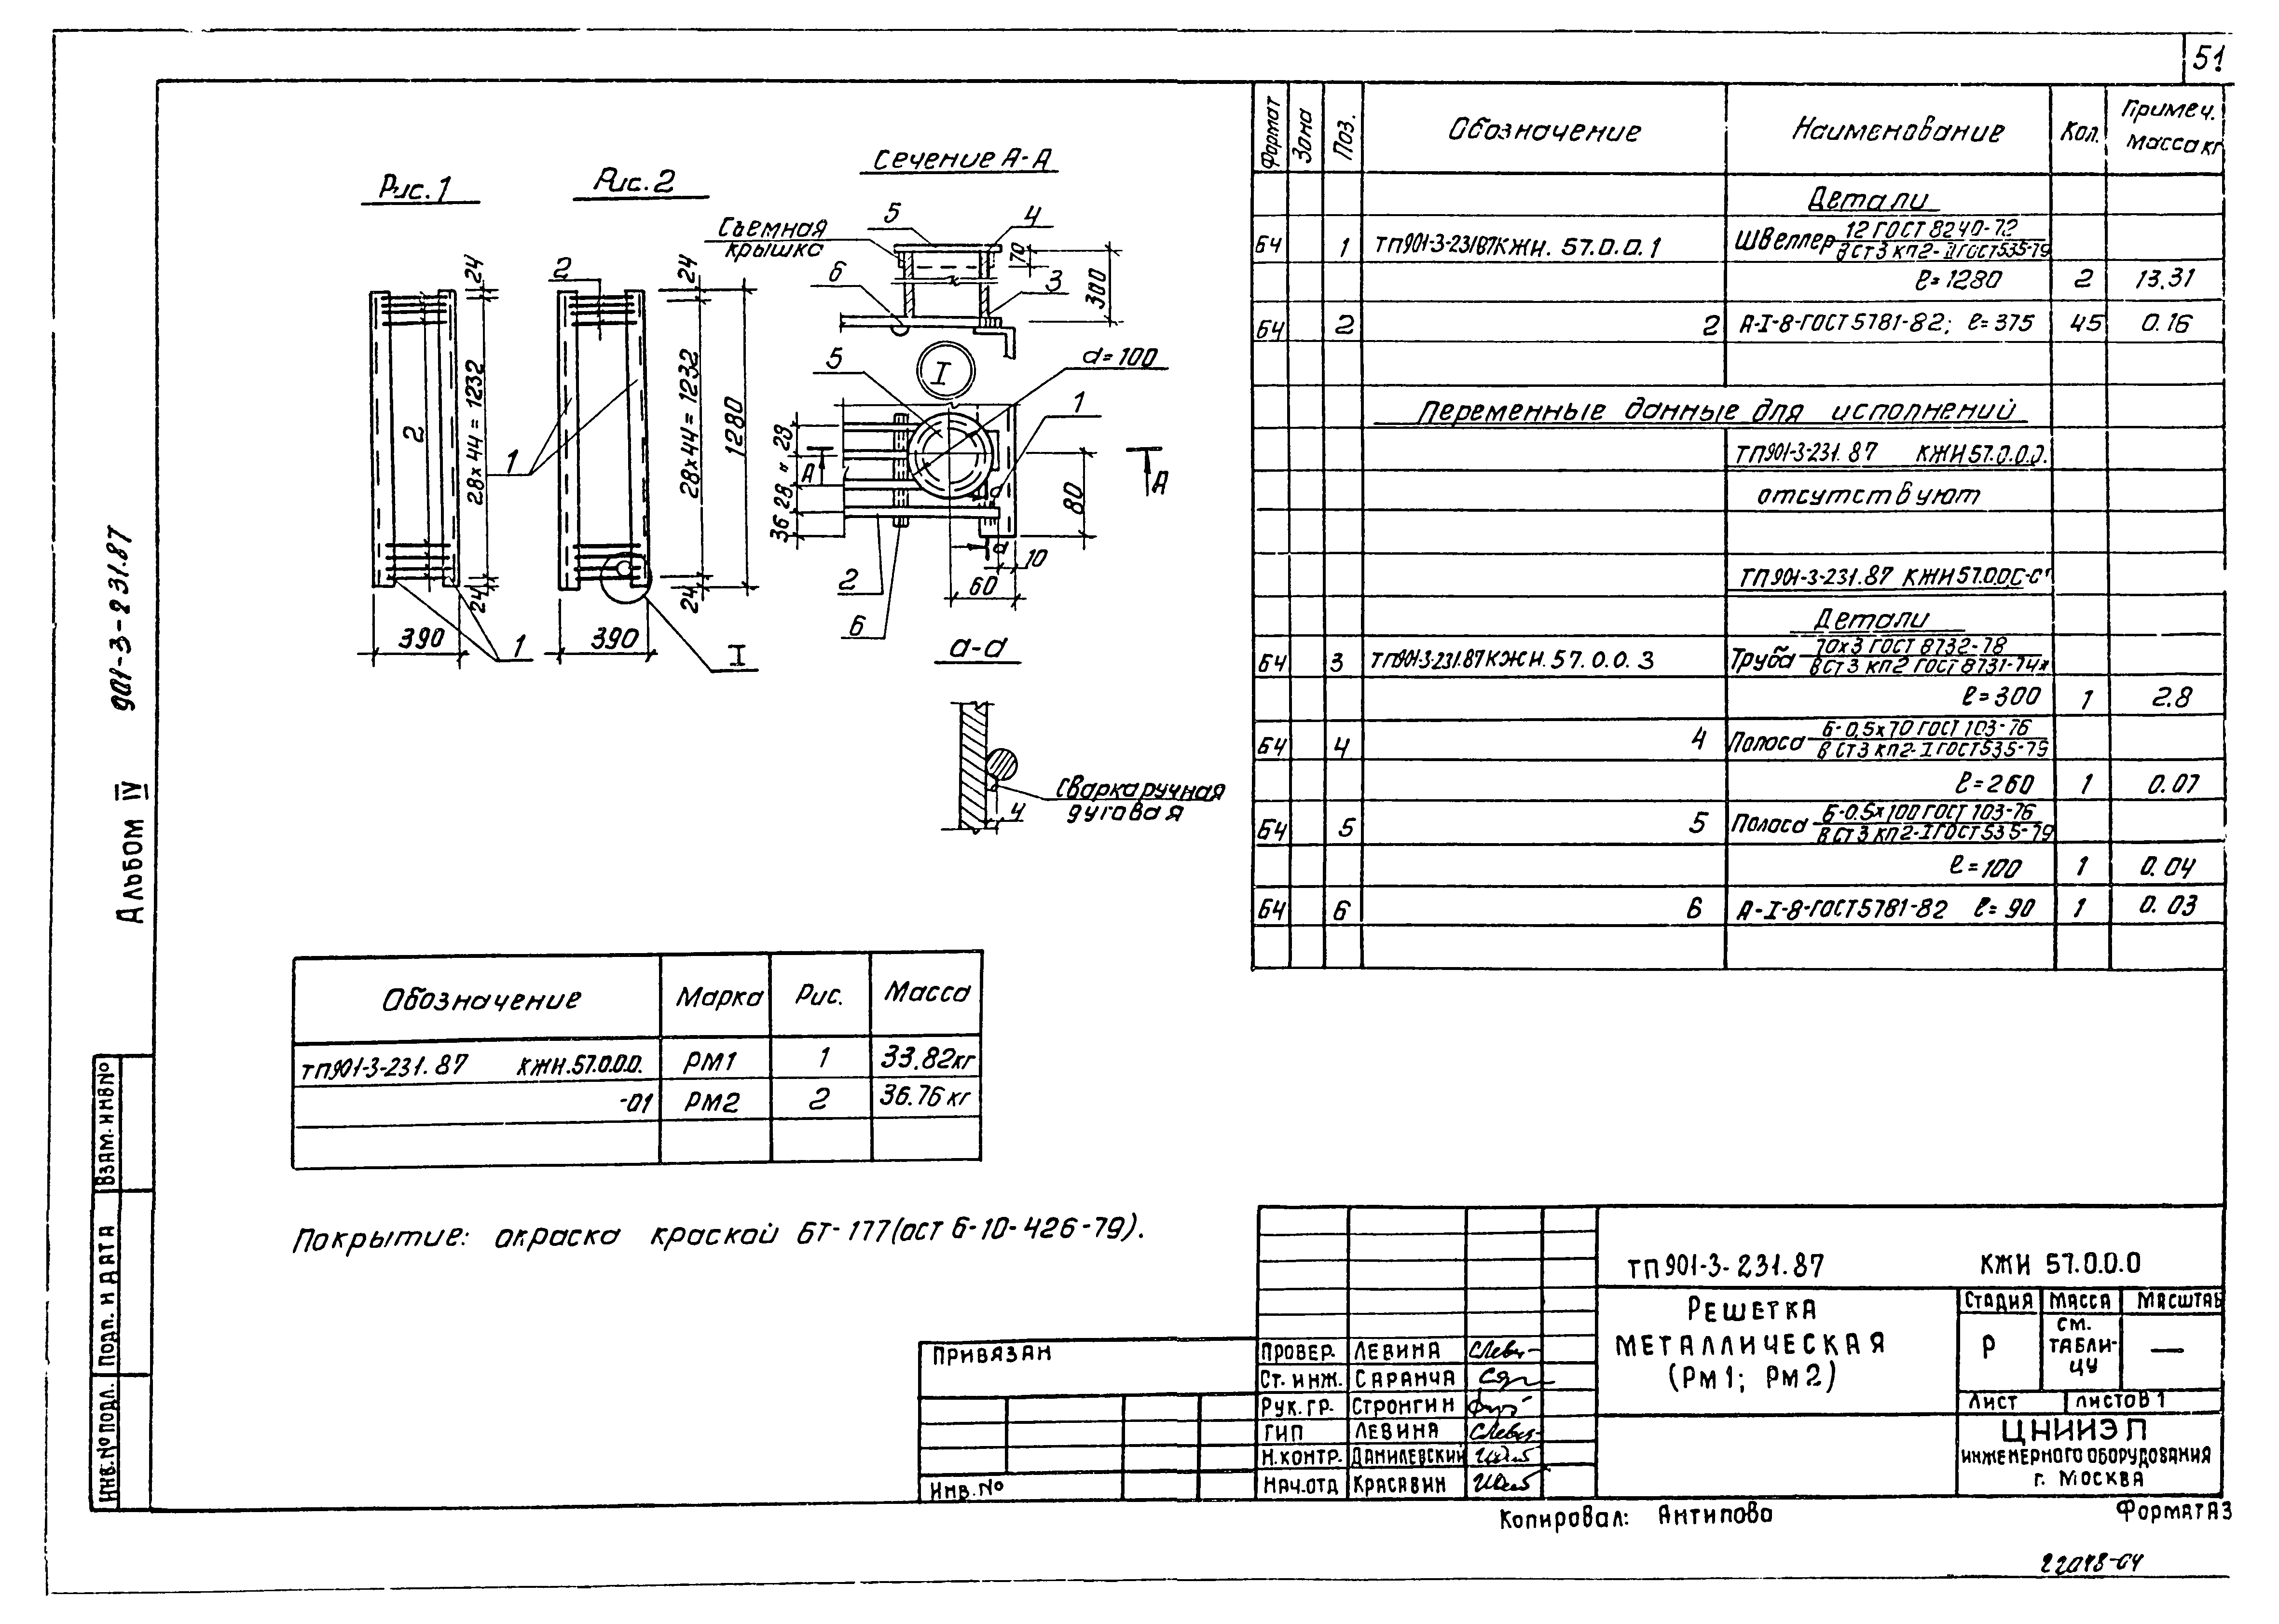 51
Рис. 1
Рис. 2
Сечение А-А
Съемная
крышка
5
4
6
3
70
300
2
24
24
28х44=1232
28х44=1232
1280
2
1
24
24
390
390
1
I
5
I
d=100
1
28
"
28
36
А
А
80
10
60
2
6
а
а
а-а
4
Сварка ручная
дуговая
Формат
Зона
Поз.
Обозначение
Наименование
Кол.
Примеч.
масса кг
Детали
Б4 1 ТП901-3-231.87КЖН.57.0.0.1 Швеллер 12 ГОСТ 8240-72
ВСТ3 КП2-II ГОСТ535-79
ℓ=1280 2 13.31
Б4 2 2 А-I-8-ГОСТ5781-82; ℓ=375 45 0.16
Переменные данные для исполнений
ТП901-3-231.87 КЖН57.0.0.0.
отсутствуют
ТП901-3-231.87 КЖН57.0.0.0-01
Детали
Б4 3 ТП901-3-231.87КЖН.57.0.0.3 Труба 70х3 ГОСТ 8732-78
ВСТ3 КП2 ГОСТ 8731-74*
ℓ=300 1 2.8
Б4 4 4 Полоса Б-0,5х70 ГОСТ 103-76
ВСТ3 КП2-I ГОСТ535-79
ℓ=260 1 0.07
Б4 5 5 Полоса Б-0.5х100 ГОСТ 103-76
ВСТ3 КП2-I ГОСТ535-79
ℓ=100 1 0.04
Б4 6 6 А-I-8-ГОСТ5781-82 ℓ=90 1 0.03
Обозначение Марка Рис. Масса
ТП901-3-231.87 КЖН.57.0.0.0. РМ1 1 33.82кг
-01 РМ2 2 36.76 кг
Покрытие: окраска краской БТ-177(ост 6-10-426-79).
Альбом IV 901-3-231.87
Взам. инв №
Подп. и дата
Инв. № подл.
Привязан
Инв. №
Провер. Левина
Ст. инж. Саранча
Рук. гр. Стронгин
ГИП Левина
Н.контр. Данилевский
Нач.отд Красавин
ТП901-3-231.87 КЖН 57.0.0.0
Решетка
металлическая
(Рм1; Рм2)
Стадия Масса Масштаб
Р см. таблицу —
Лист Листов 1
ЦНИИЭП
инженерного оборудования
г. Москва
Копировал: Антипова
Формат А3
22048-04